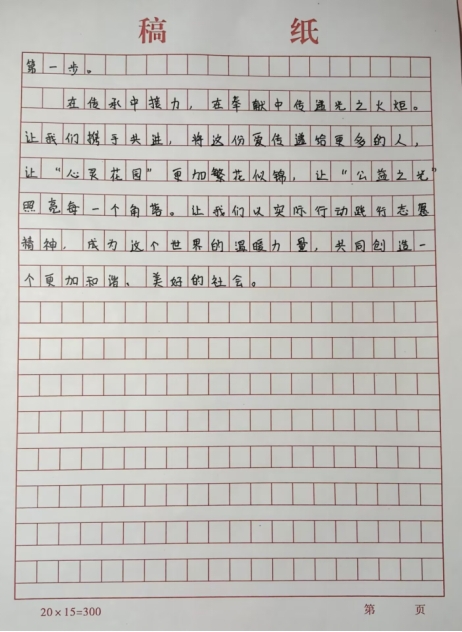 稿 纸
第一步。
在传承中接力，在奉献中传递光之火炬。
让我们携手共进，将这份爱传递给更多的人，
让“心灵花园”更加繁花似锦，让“公益之光”
照亮每一个角落。让我们以实际行动践行志愿
精神，成为这个世界的温暖力量，共同创造一
个更加和谐、美好的社会。
20×15=300 第 页